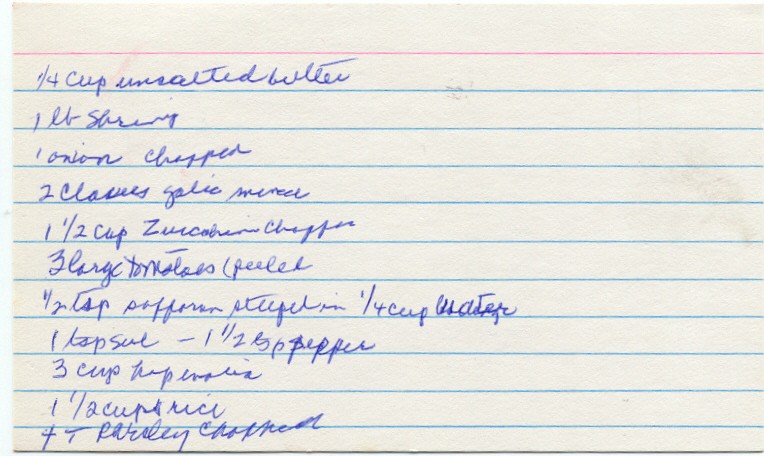 1/4 cup unsalted butter
1 lb Shrimp
1 onion chopped
2 Cloves galic mince
1 1/2 cup Zuccchini Chopper
3 large tomatoes (peeled
1/2 tsp safforan steeped in 1/4 cup water
1 tsp sal - 1 1/2 tsp pepper
3 cup
1 1/2 cups rice
4 T Parsley Chopped